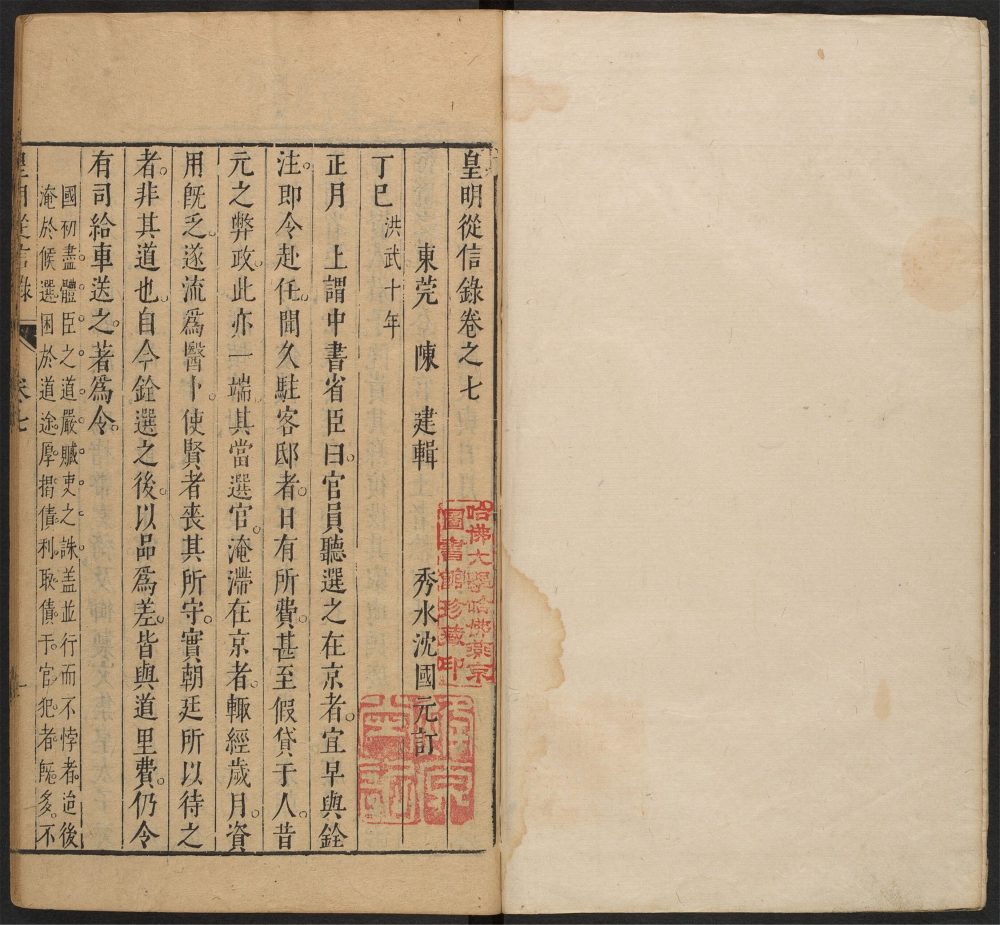 皇明從信錄卷之七
東莞　陳　建輯　　秀水沈國元訂
丁巳洪武十年
正月　上謂中書省臣曰。官員聽選之在京者。宜早與銓
注。即令赴任。聞久駐客邸者。日有所費。甚至假貸于人。昔
元之弊政。此亦一端。其當選官。淹滯在京者。輒經歲月。資
用旣乏。遂流爲醫卜。使賢者喪其所守。實朝廷所以待之
者。非其道也。自今銓選之後。以品爲差。皆與道里費。仍令
有司給車送之。著爲令。
國初盡體臣之道。嚴贓吏之誅。盖並行而不悖者。迨後
淹於候選。困於道途。厚揭債利。取債于官。犯者旣多。不
皇明從信錄
卷七
一
哈佛大學哈佛燕京
圖書館珍藏印